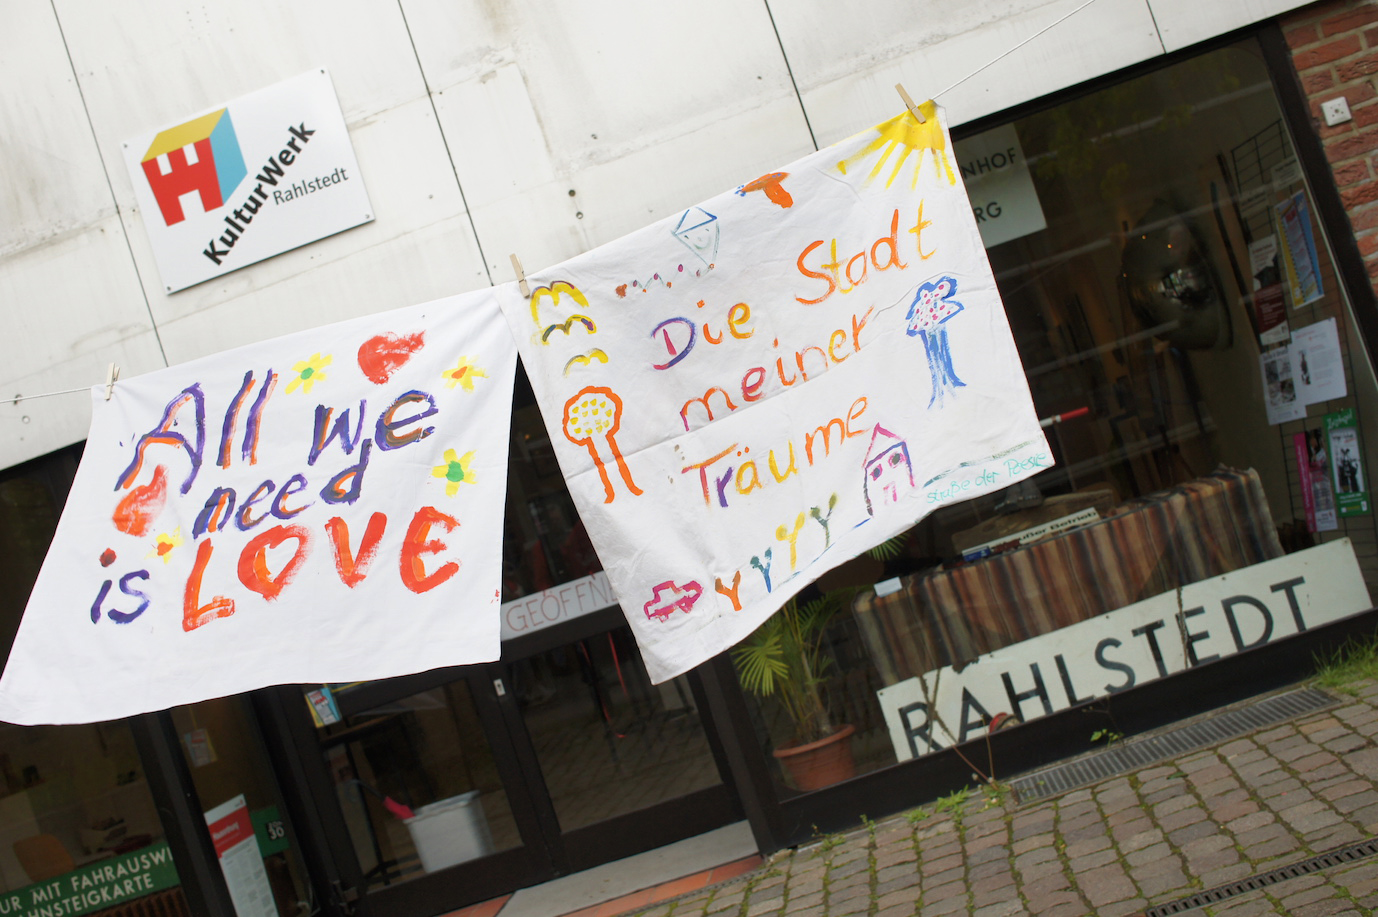 KulturWerk
Rahlstedt
All we
need
is LOVE
Die Stadt
meiner
Träume
straße der Poesie
GEÖFFN
NHOF
RG
außer Betrieb
RAHLSTEDT
UR MIT FAHRAUSWE
AHNSTEIGKARTE
30